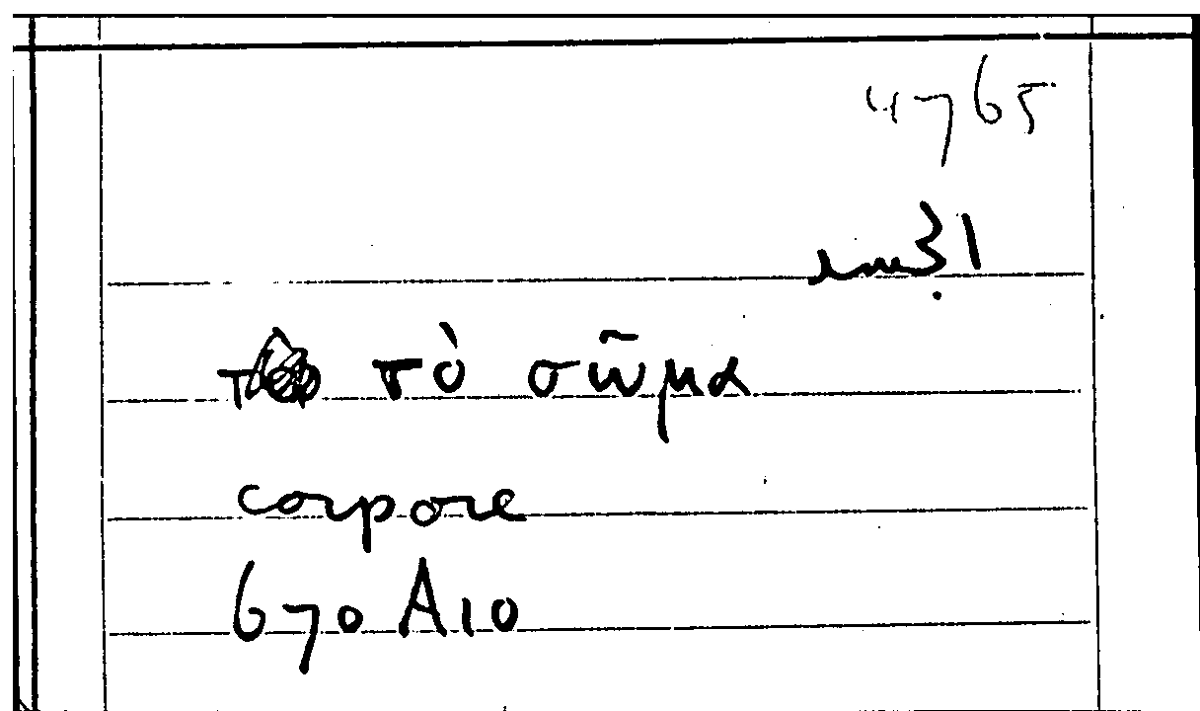 4765
τὸ σῶμα
corpore
670 A10